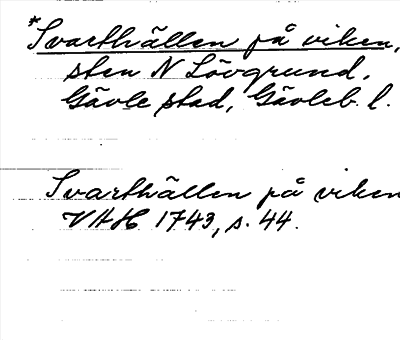 *Svarthällen på viken,
sten N Lövgrund,
Gävle stad, Gävleb. l.
Svarthällen på viken
VAH 1743, s. 44.